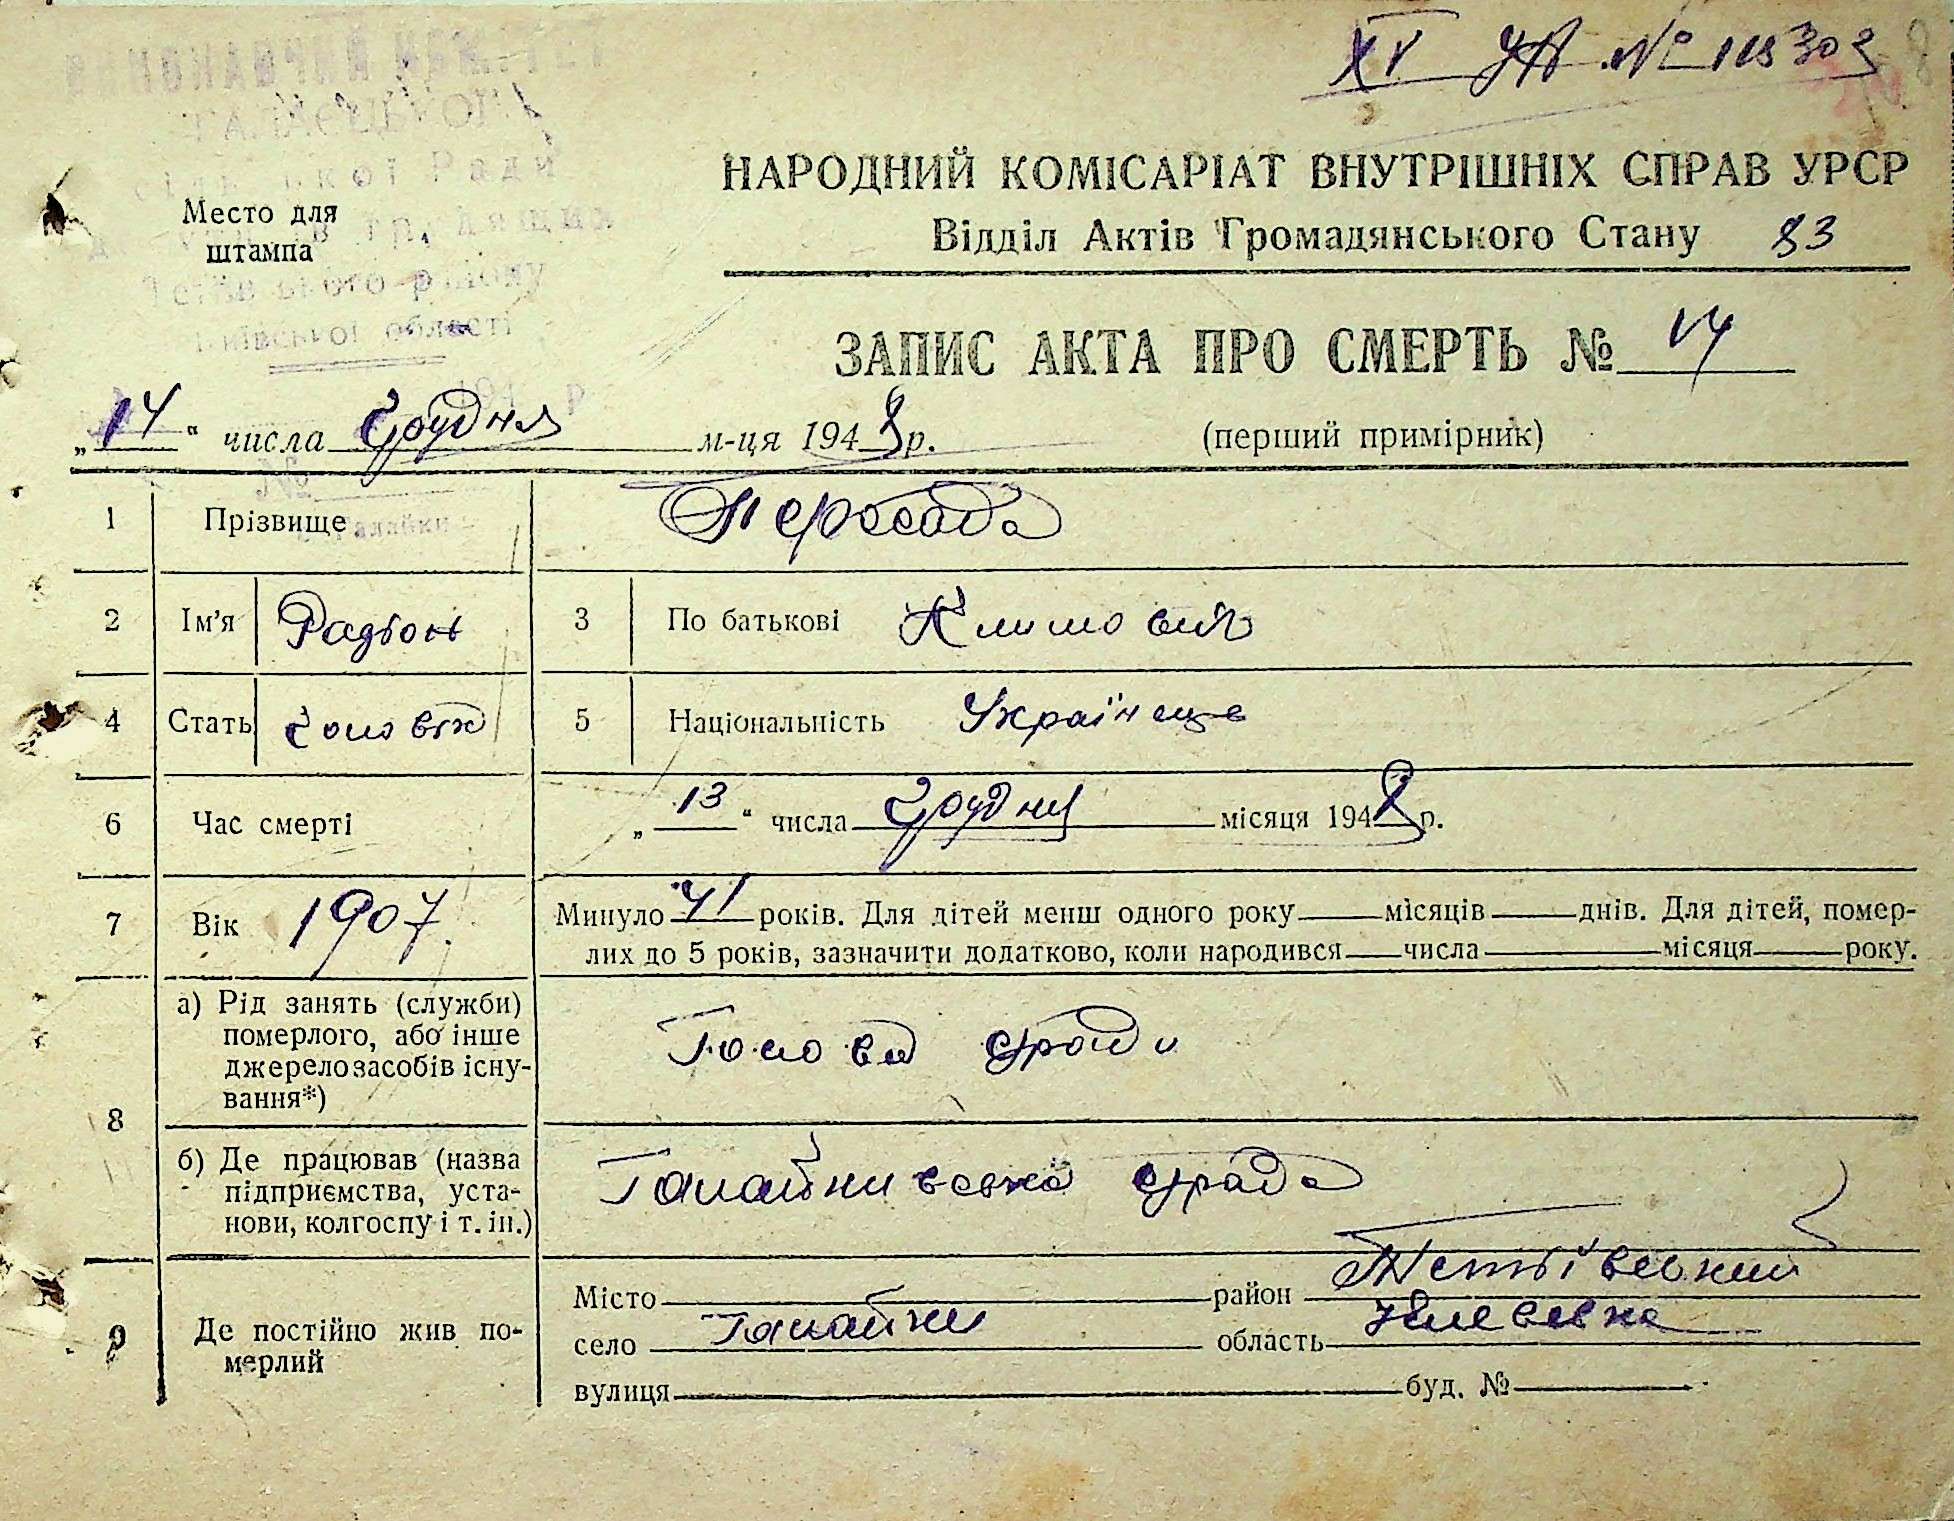 XV УА № 113303
ВИКОНАВЧИЙ КОМІТЕТ
ГАЛАЙЦЬКОЇ
сільської Ради
депутатів трудящих
Тетіївського району
Київської області
Место для
штампа
НАРОДНИЙ КОМІСАРІАТ ВНУТРІШНІХ СПРАВ УРСР
Відділ Актів Громадянського Стану 83
ЗАПИС АКТА ПРО СМЕРТЬ № 14
„14“ числа Грудня м-ця 1948 р. (перший примірник)
№
1 Прізвище Пересада
2 Ім'я Радіон 3 По батькові Климович
4 Стать Чоловік 5 Національність Українець
6 Час смерті „13“ числа Грудня місяця 1948 р.
7 Вік 1907 Минуло 41 років. Для дітей менш одного року місяців днів. Для дітей, помер-
лих до 5 років, зазначити додатково, коли народився числа місяця року.
8 а) Рід занять (служби) померлого, або інше джерело засобів існу-вання*) Голова с/ради
б) Де працював (назва підприємства, уста-нови, колгоспу і т. ін.) Галайківська с/рада
9 Де постійно жив по-мерлий
Місто район Тетіївський
село Галайки область Київська
вулиця буд. №